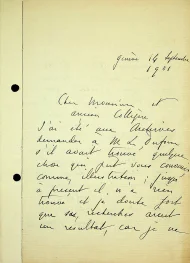 Genève 14 Septembre
1901
Cher Monsieur et
ancien Collègue
J'ai été aux Archives
demander à M. L. Dufour
s'il avait trouvé quelque
chose qui peut vous convenir
comme illustration ; jusqu'
à présent il n'a rien
trouvé et je doute fort
que ses recherches aient
un résultat, car je ne